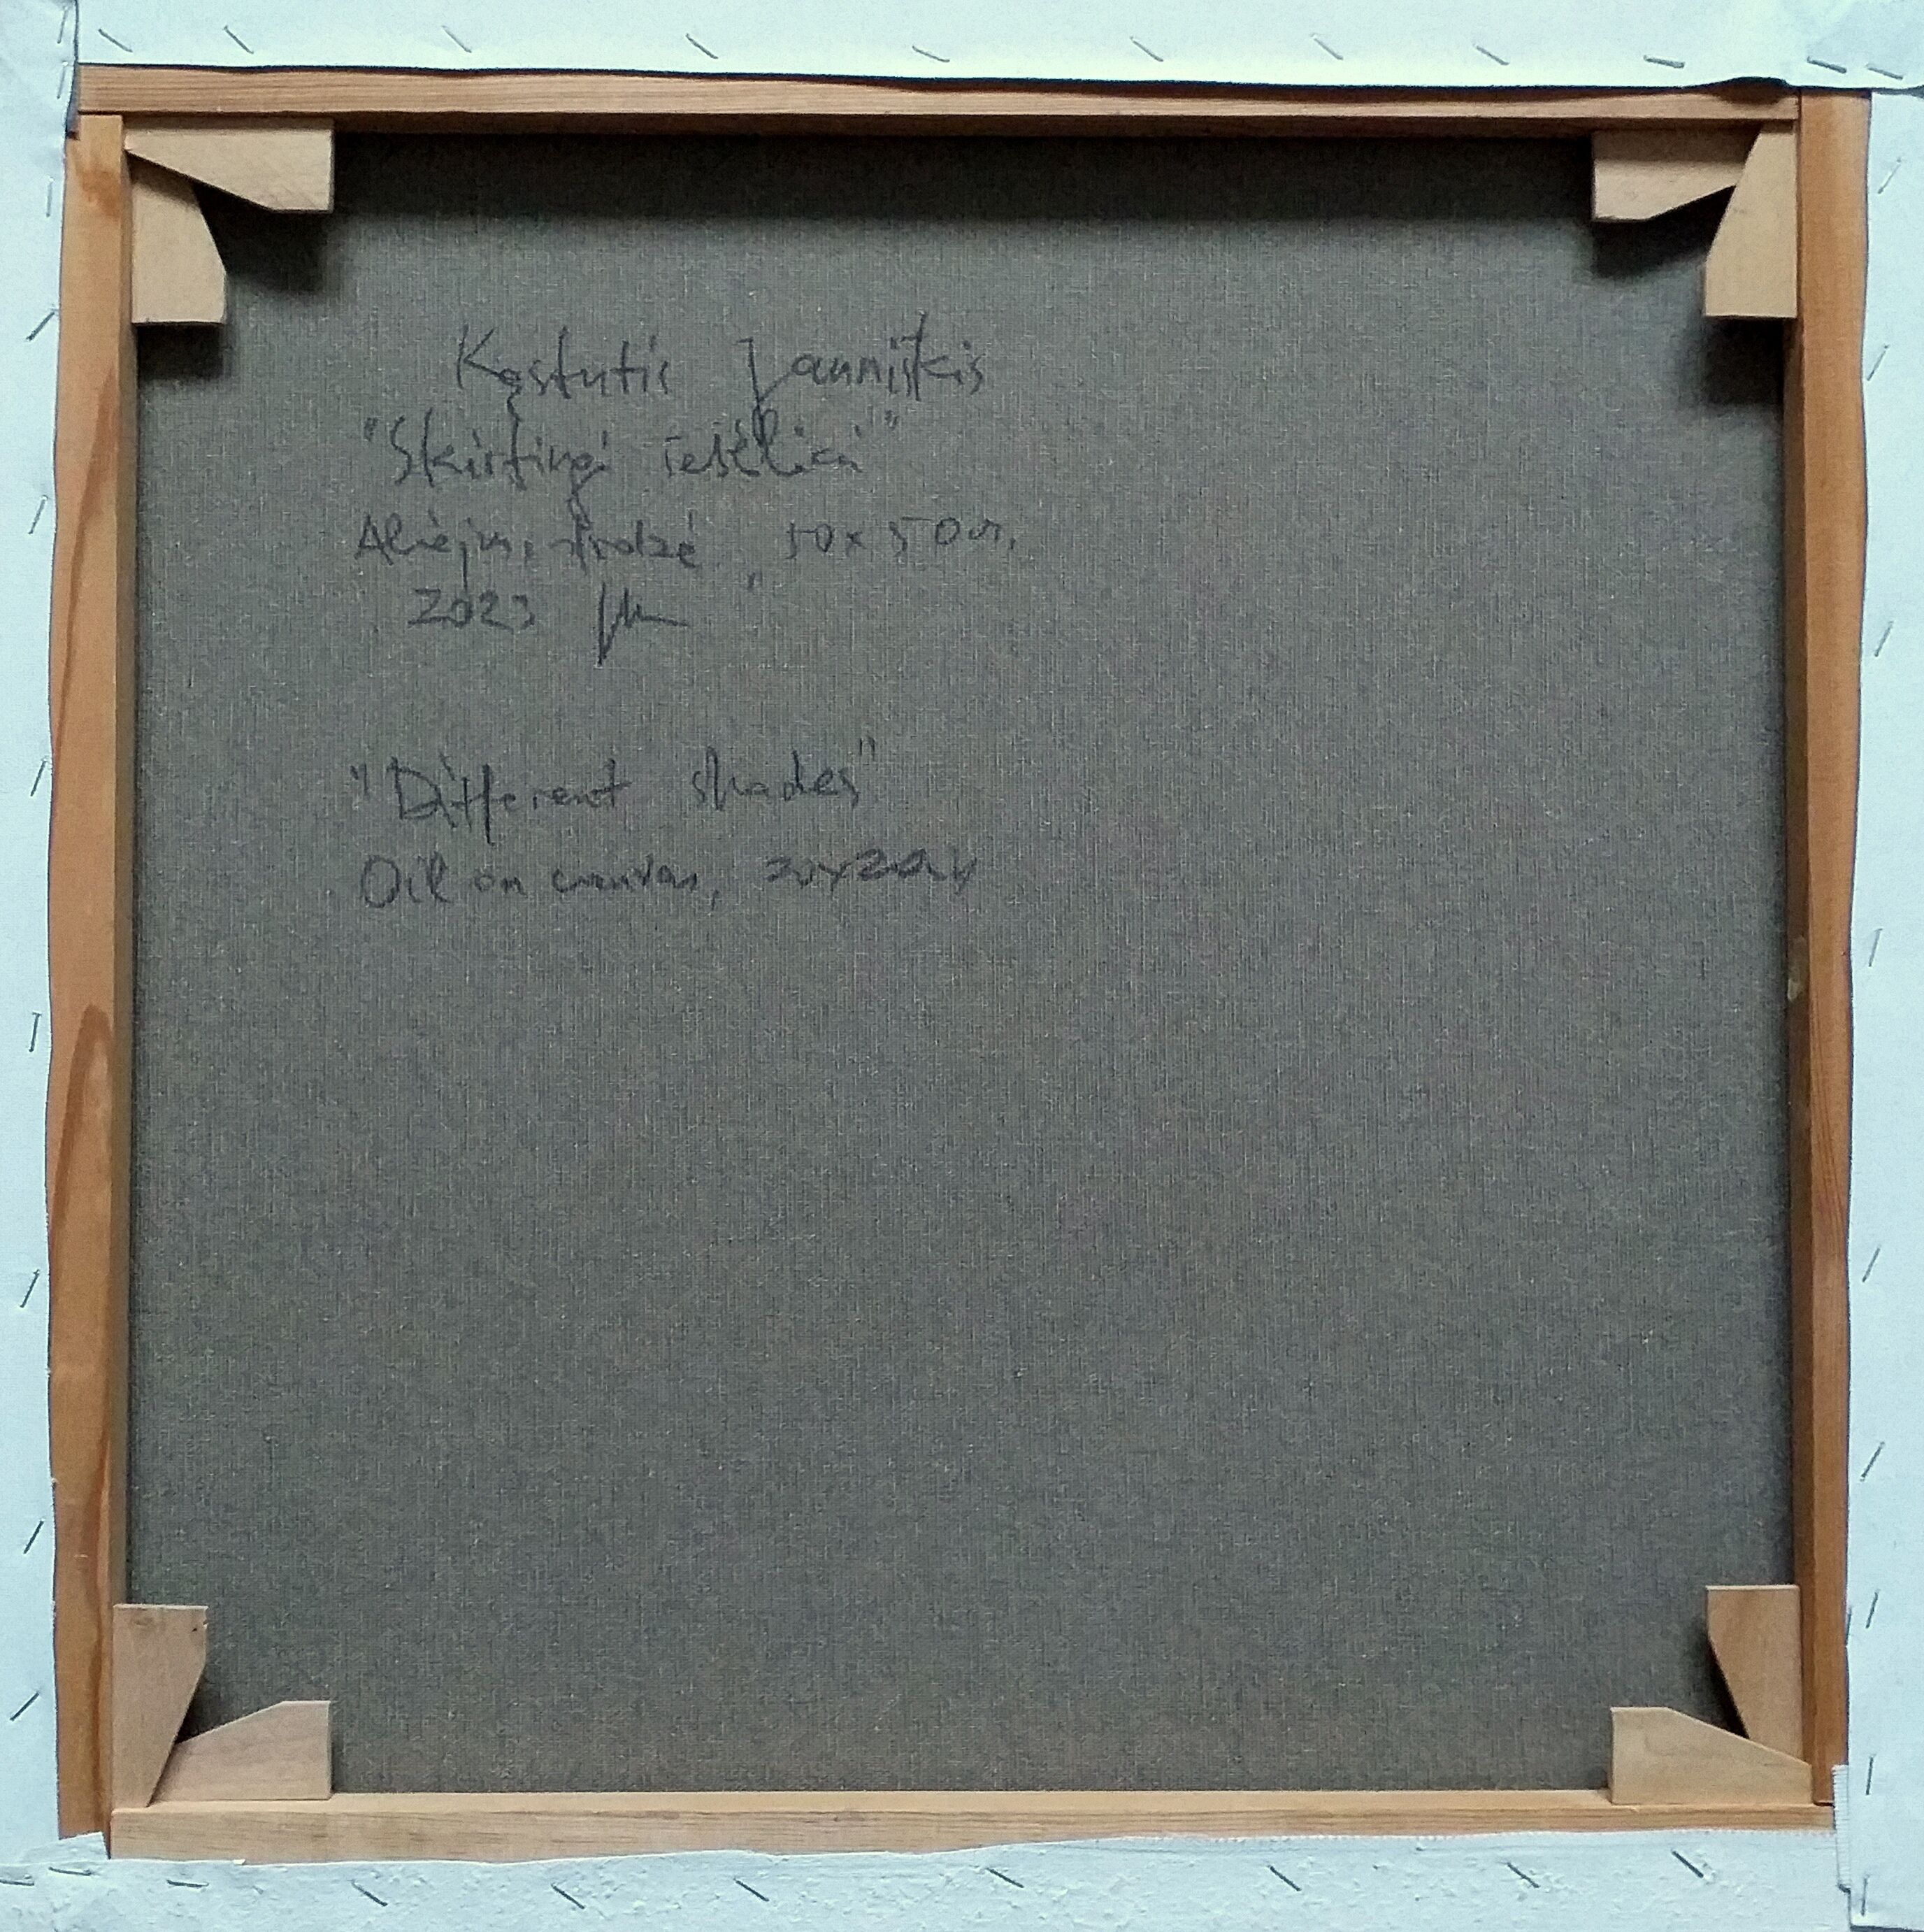 Kęstutis Jauniškis
"Skirtingi šešėliai"
Aliejus, drobė 50x50cm.
2023
"Different shades"
Oil on canvas,